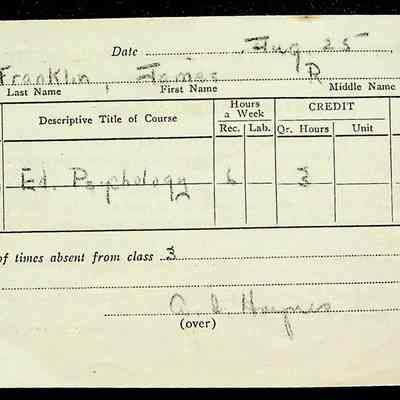 Date Aug 25
Franklin, James R
Last Name First Name Middle Name
Descriptive Title of Course Hours a Week Rec. Lab. CREDIT Qr. Hours Unit
Ed. Psychology 6 3
of times absent from class 3
(over)